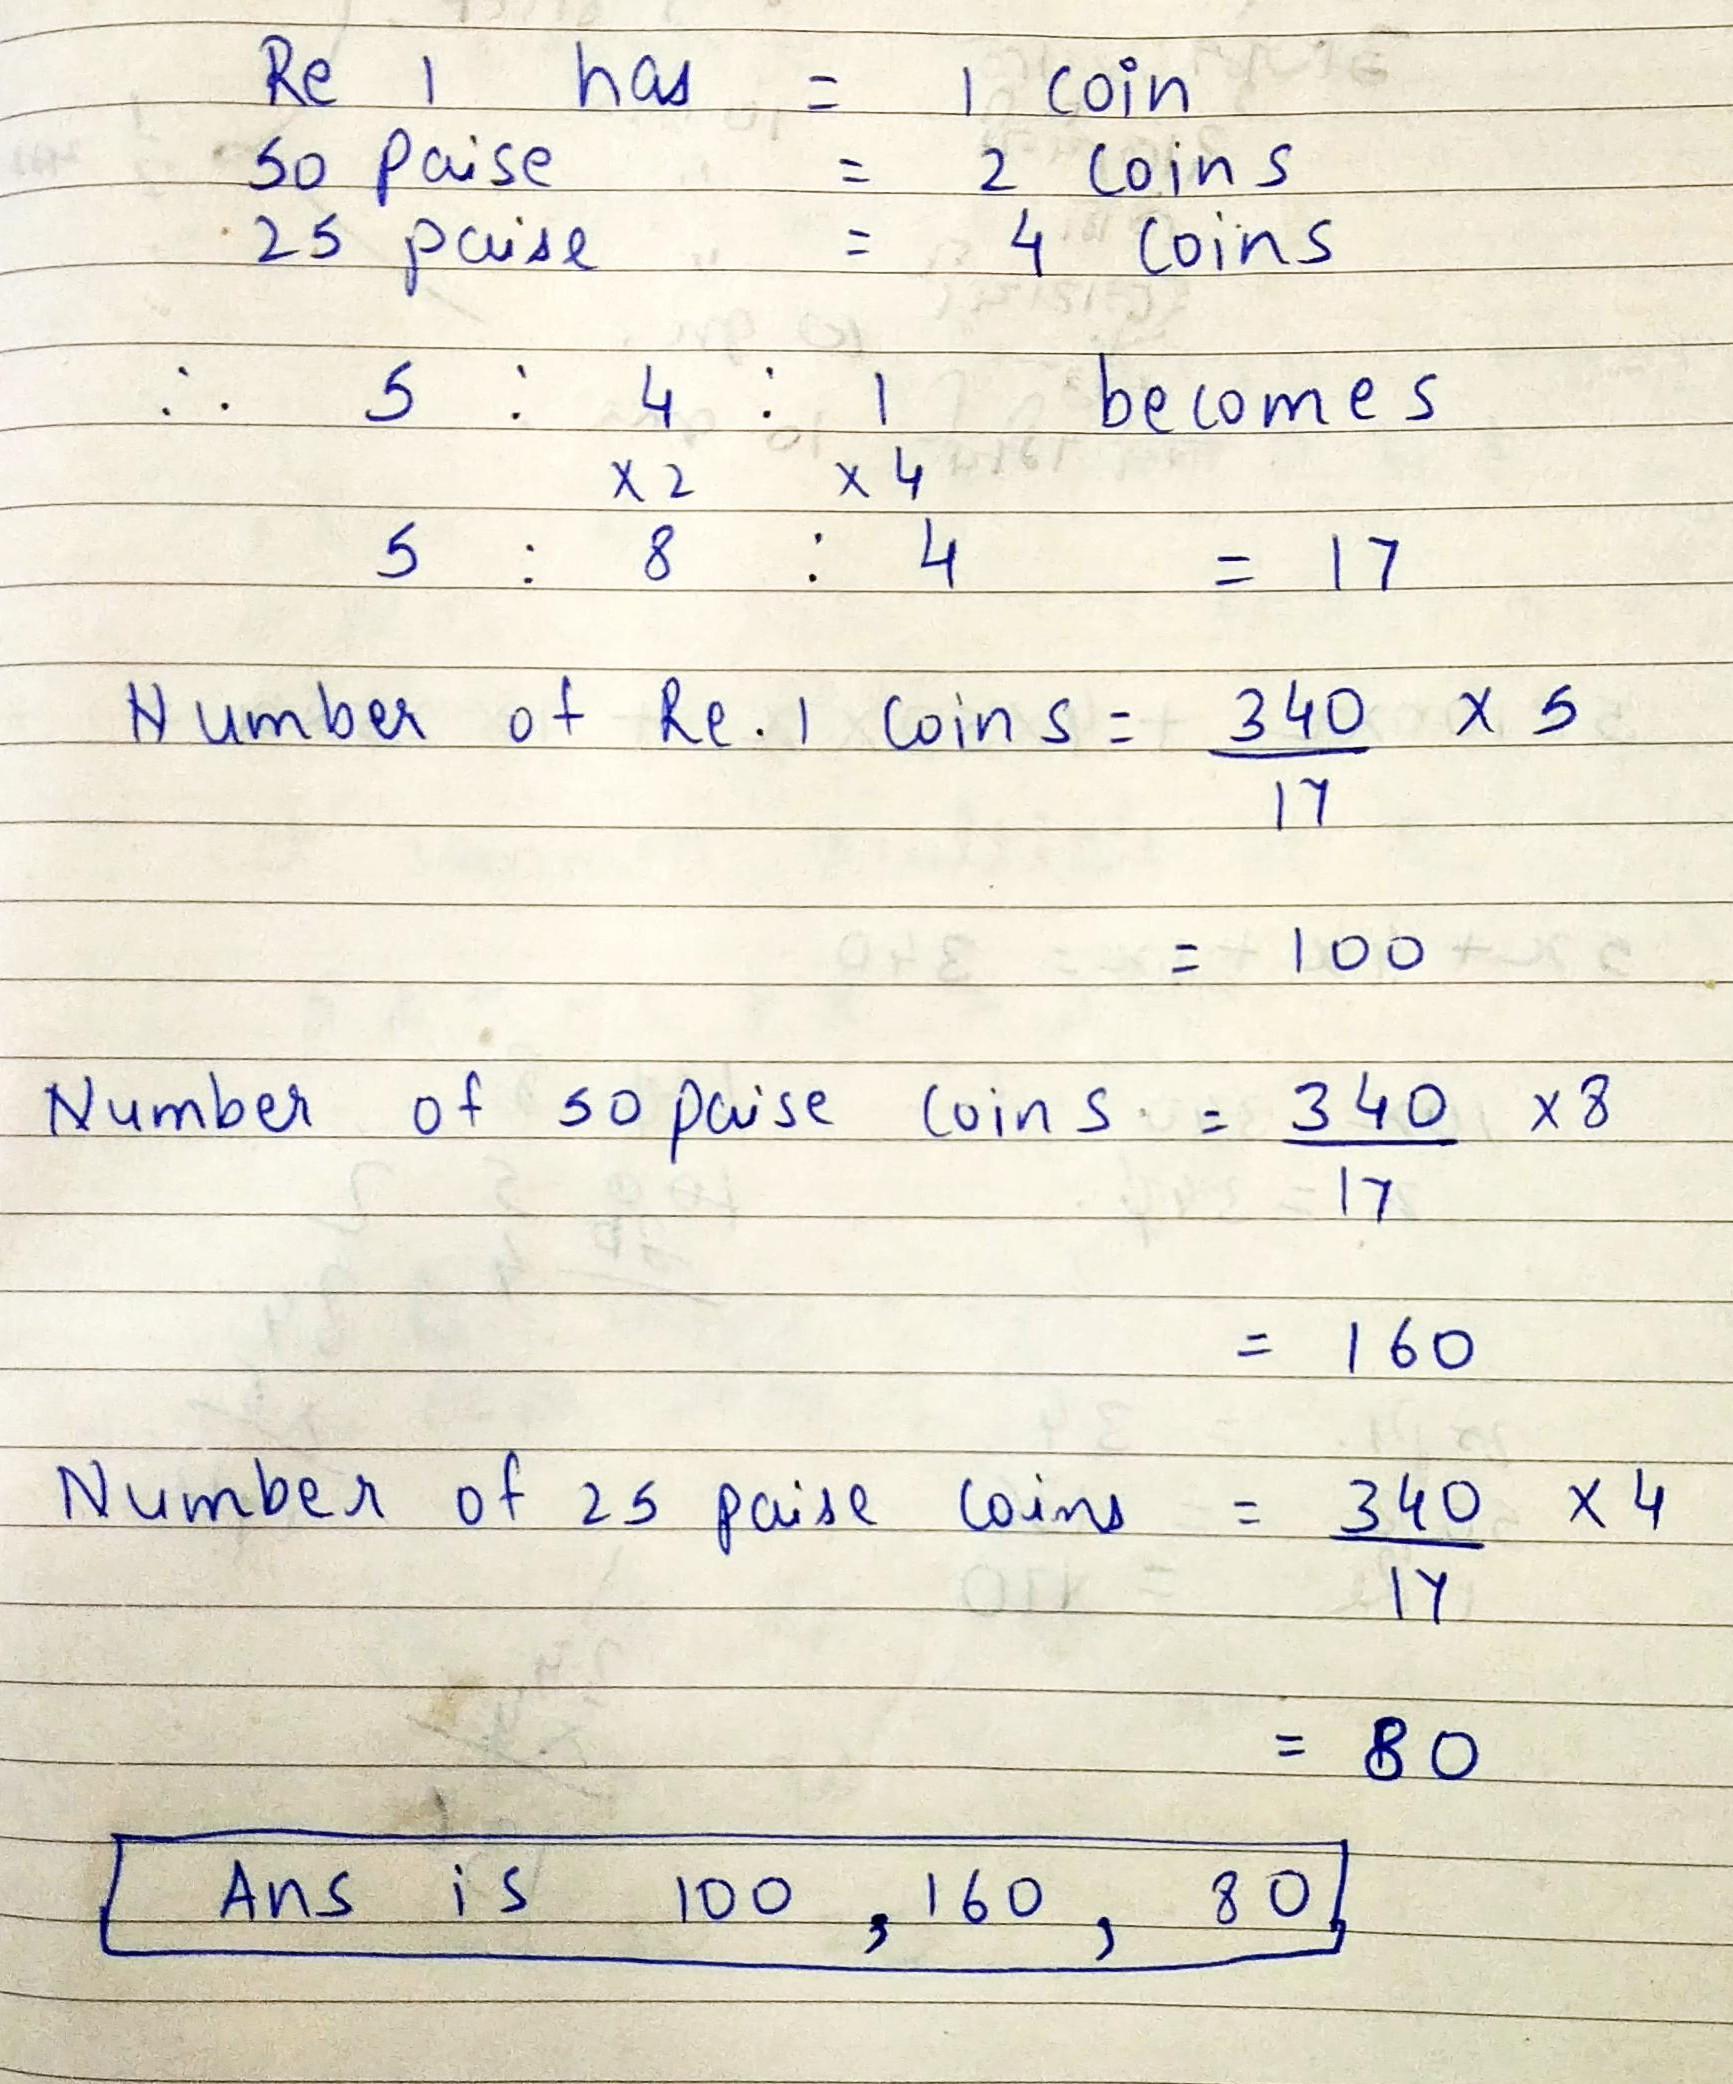 Re 1 has = 1 coin
50 paise = 2 coins
25 paise = 4 coins
∴ 5 : 4 : 1 becomes
x 2 x 4
5 : 8 : 4 = 17
Number of Re. 1 coins = 340 x 5
17
= 100
Number of 50 paise coins = 340 x 8
17
= 160
Number of 25 paise coins = 340 x 4
17
= 80
Ans is 100, 160, 80